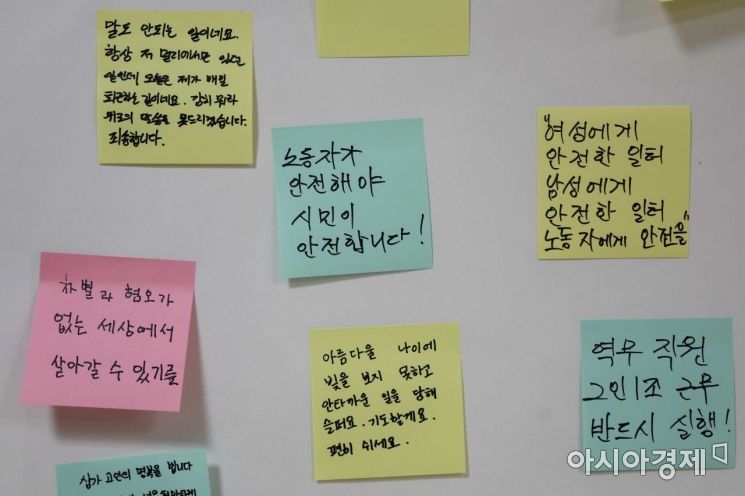 말도 안되는 일이네요.
항상 저 멀리에서만 있던
일인데 오늘은 제가 매일
퇴근하는 길이네요. 감히 뭐라
위로의 말씀을 못드리겠습니다.
죄송합니다.
노동자가
안전해야
시민이
안전합니다!
"여성에게
안전한 일터
남성에게
안전한 일터
노동자에게 안전을"
차별과 혐오가
없는 세상에서
살아갈 수 있기를
아름다울 나이에
빛을 보지 못하고
안타까운 일을 당해
슬퍼요. 기도할게요.
편히 쉬세요.
역무 직원
2인1조 근무
반드시 실행!
삼가 고인의 명복을 빕니다
아시아경제